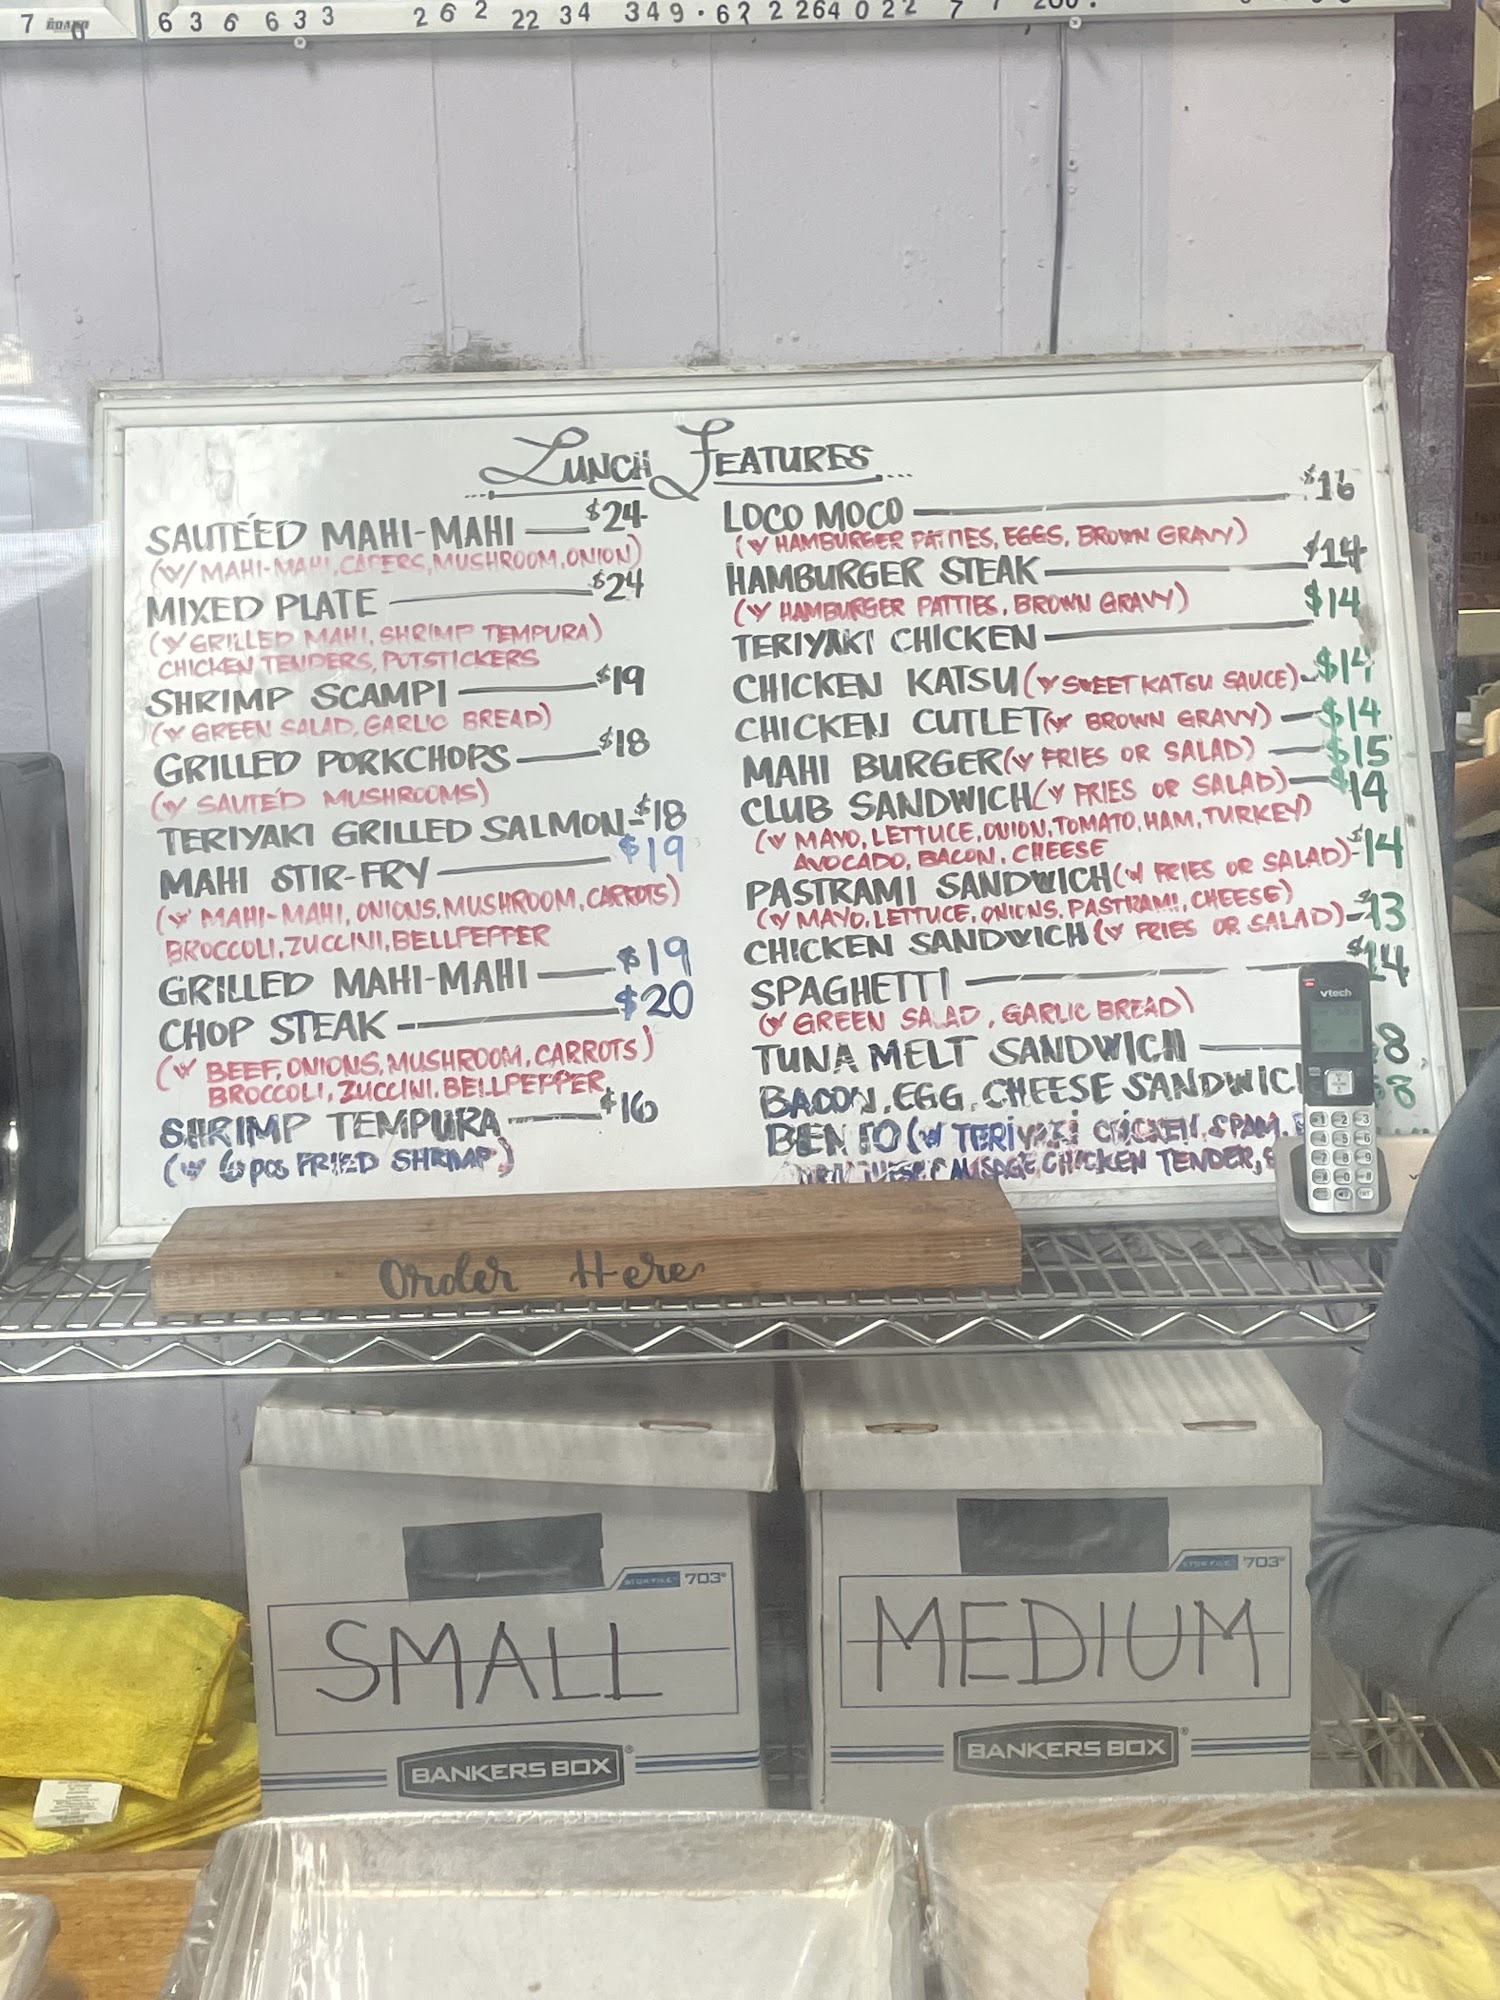 6 3 6 6 3 3 2 6 2 22 34 349.62 2 264 0 22 7
LUNCH FEATURES
SAUTÉED MAHI-MAHI $24
(W/ MAHI-MAHI, CAPERS, MUSHROOM, ONION)
MIXED PLATE $24
(W GRILLED MAHI, SHRIMP TEMPURA)
CHICKEN TENDERS, POTSTICKERS
SHRIMP SCAMPI $19
(W GREEN SALAD, GARLIC BREAD)
GRILLED PORKCHOPS $18
(W SAUTE'D MUSHROOMS)
TERIYAKI GRILLED SALMON $18
MAHI STIR-FRY $19
(W MAHI-MAHI, ONIONS, MUSHROOM, CARROTS)
BROCCOLI, ZUCCINI, BELLPEPPER
GRILLED MAHI-MAHI $19
CHOP STEAK $20
(W BEEF, ONIONS, MUSHROOM, CARROTS)
BROCCOLI, ZUCCINI, BELLPEPPER
SHRIMP TEMPURA $16
(W 6 pcs FRIED SHRIMP)
LOCO MOCO $16
(W HAMBURGER PATTIES, EGGS, BROWN GRAVY)
HAMBURGER STEAK $14
(W HAMBURGER PATTIES, BROWN GRAVY)
TERIYAKI CHICKEN $14
CHICKEN KATSU (W SWEET KATSU SAUCE) $14
CHICKEN CUTLET (W BROWN GRAVY) $14
MAHI BURGER (W FRIES OR SALAD) $15
CLUB SANDWICH (W FRIES OR SALAD) $14
(W MAYO, LETTUCE, ONION, TOMATO, HAM, TURKEY)
AVOCADO, BACON, CHEESE
PASTRAMI SANDWICH (W FRIES OR SALAD) $14
(W MAYO, LETTUCE, ONIONS, PASTRAMI, CHEESE)
CHICKEN SANDWICH (W FRIES OR SALAD) $13
SPAGHETTI $14
(W GREEN SALAD, GARLIC BREAD)
TUNA MELT SANDWICH 8
BACON, EGG, CHEESE SANDWIC 8
BENTO (W TERIYAKI CHICKEN, SPAM,
SAUSAGE, CHICKEN TENDER,
vtech
Order Here
STOR/FILE 703
SMALL
BANKERS BOX
STOR/FILE 703
MEDIUM
BANKERS BOX